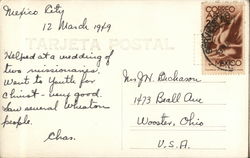 Mexico City
12 March 1949
TARJETA POSTAL
Helped at a wedding of
two missionaries.
Went to Youth for
Christ - very good.
Saw several Wheaton
people.
Chas.
CORREO
MEXICO
Mrs J.H.
1473 Beall Ave
Wooster, Ohio
U.S.A.